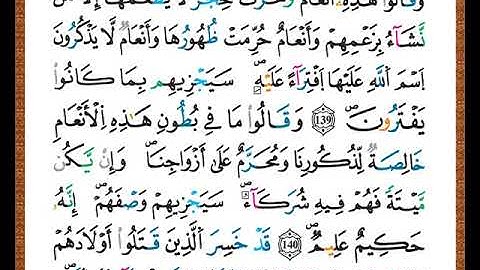 وَقَالُوا۟ هَٰذِهِۦٓ أَنْعَٰمٌ وَحَرْثٌ حِجْرٌ لَّا يَطْعَمُهَآ إِلَّا مَن
نَّشَآءُ بِزَعْمِهِمْ وَأَنْعَٰمٌ حُرِّمَتْ ظُهُورُهَا وَأَنْعَٰمٌ لَّا يَذْكُرُونَ
اِسْمَ اَللَّهِ عَلَيْهَا اَفْتِرَآءً عَلَيْهِۖ سَيَجْزِيهِم بِمَا كَانُوا۟
يَفْتَرُونَۖ 139 وَقَالُوا۟ مَا فِي بُطُونِ هَٰذِهِ اِلْأَنْعَٰمِ
خَالِصَةٌ لِّذُكُورِنَا وَمُحَرَّمٌ عَلَىٰ أَزْوَٰجِنَاۖ وَإِنْ يَّكُن
مَّيْتَةً فَهُمْ فِيهِ شُرَكَآءُۖ سَيَجْزِيهِمْ وَصْفَهُمْۖ إِنَّهُۥ
حَكِيمٌ عَلِيمٌۖ 140 قَدْ خَسِرَ اَلَّذِينَ قَتَلُوٓا۟ أَوْلَٰدَهُمْ